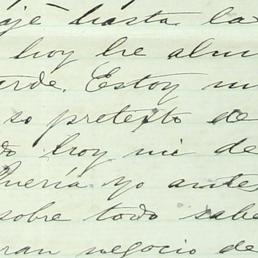 ajé hasta la
hoy he alm
arde. Estoy m
so pretexto de
do hoy mi de
Quería yo antes
sobre todo sabe
ran negocio de